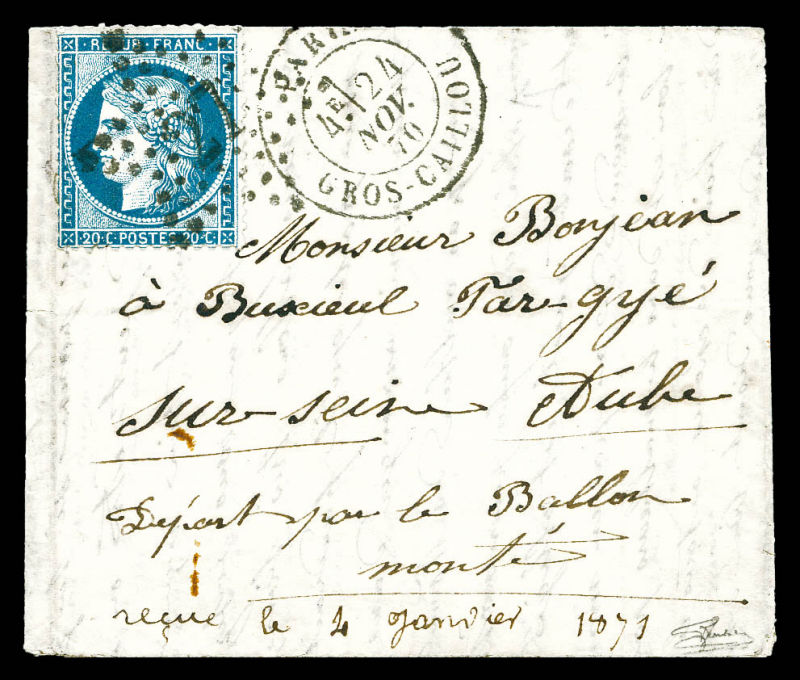 REPUB·FRANC·
20·C·POSTES·20·C
PARIS
4E 24
NOV.
70
GROS-CAILLOU
Monsieur Bonjean
à Buxieul Par-gyé
sur-seine Aube
Départ par le Ballon
monté
reçue le 4 Janvier 1871